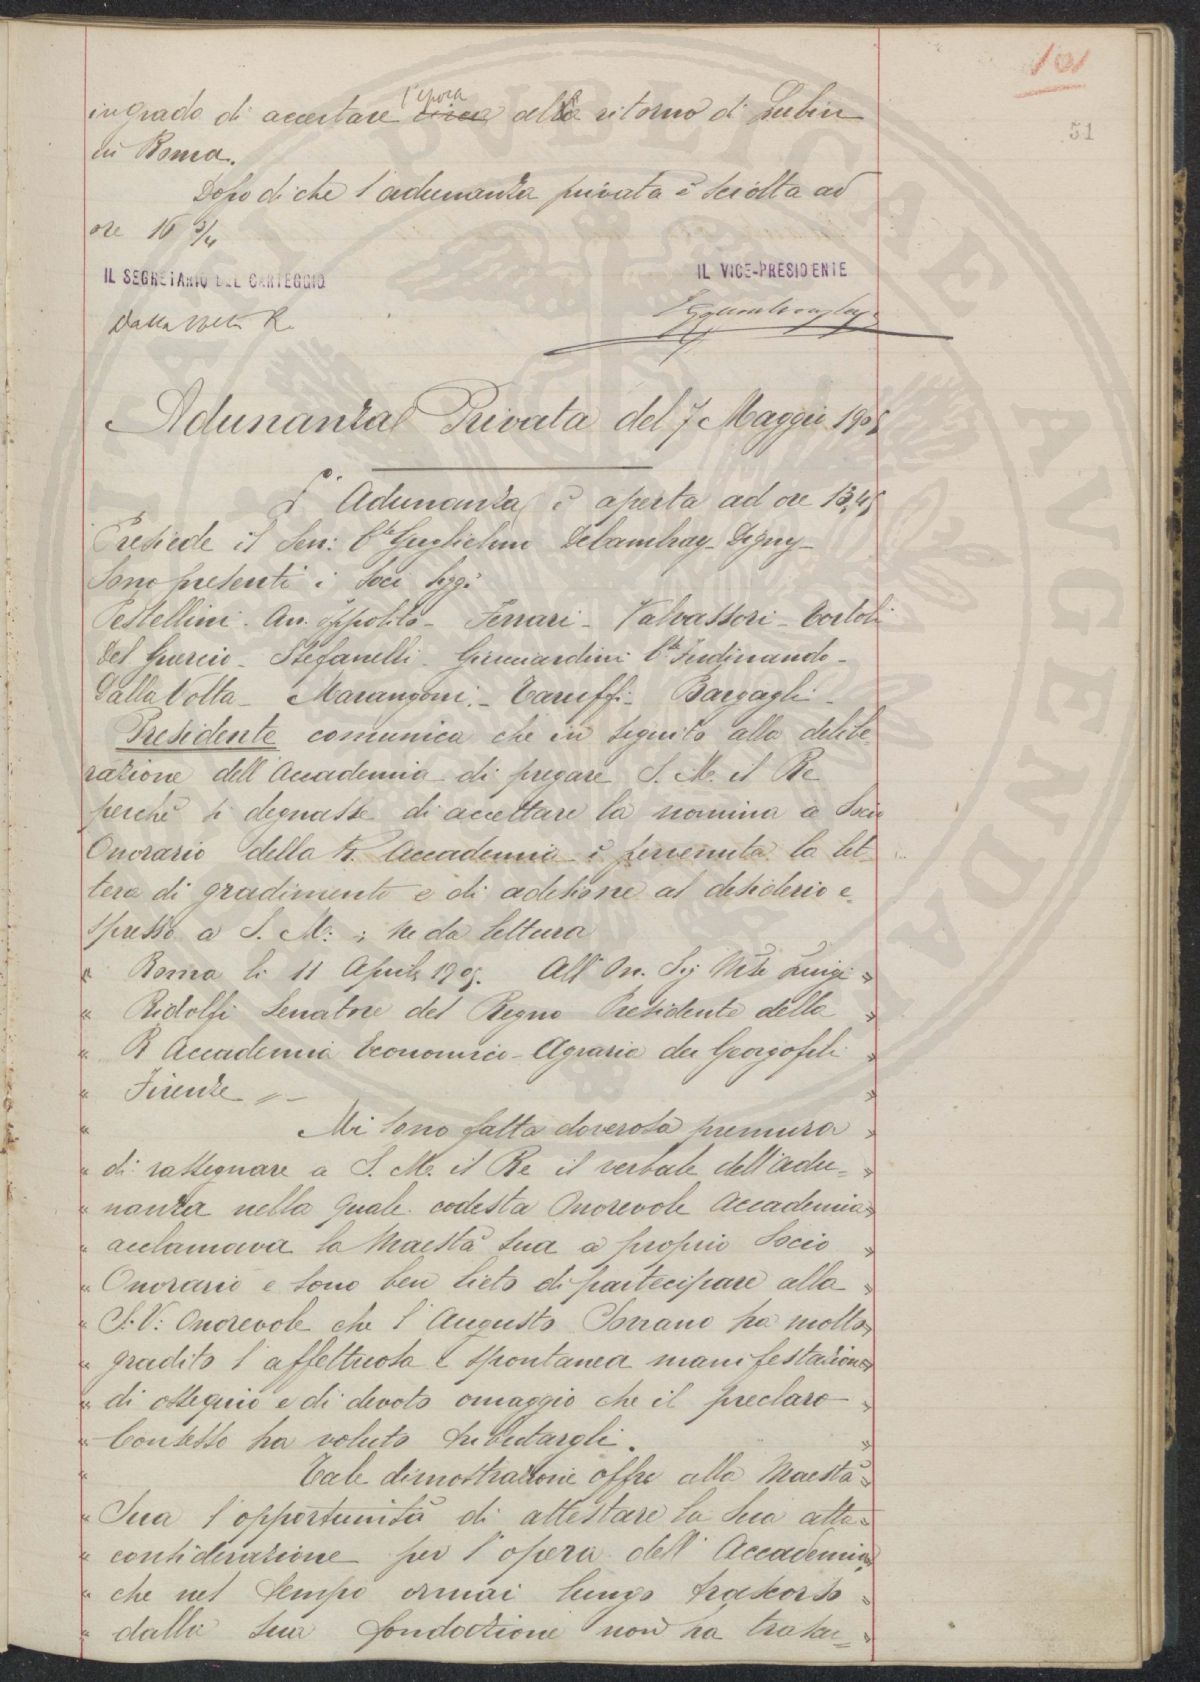 101
51
in grado di accertare l'epoca circa della ritorno di Lubin
in Roma.
Dopo di che l'adunanza privata è sciolta ad
ore 16 3/4
IL SEGRETARIO DEL CARTEGGIO
IL VICE-PRESIDENTE
Dalla Volta R.
Adunanza Privata del 7 Maggio 1905
L'Adunanza è aperta ad ore 13,45
Presiede il Sen: Cte Guglielmo Decambray-Digny-
Sono presenti i Soci Sigg:
Pestellini - An. Ippolito - Ferrari - Valvassori - Bortoli
Del Guercio - Stefanelli - Guicciardini Cte Ferdinando -
Dalla Volta - Marangoni - Taruffi - Bargagli -
Presidente comunica che in seguito alla delibe-
razione dell'Accademia di pregare S. M. il Re
perché si degnasse di accettare la nomina a Socio
Onorario della R. Accademia è pervenuta la let-
tera di gradimento e di adesione al desiderio e-
spresso a S. M: ; ne da lettura
" Roma li 11 Aprile 1905. All'On. Sig Mse Luigi "
" Ridolfi Senatore del Regno Presidente della "
" R Accademia Economico-Agraria dei Georgofili "
" Firenze "
" Mi sono fatta doverosa premura "
" di rassegnare a S. M. il Re il verbale dell'adu= "
" nanza nella quale codesta Onorevole Accademia "
" acclamava la Maestà Sua a proprio Socio "
" Onorario e sono ben lieto di partecipare alla "
" S. V: Onorevole che l'Augusto Sovrano ha molto "
" gradito l'affettuosa e spontanea manifestazione "
" di ossequio e di devoto omaggio che il preclaro "
" Consesso ha voluto tributargli. "
" Tale dimostrazione offre alla Maestà "
" Sua l'opportunità di attestare la Sua alta "
" considerazione per l'opera dell'Accademia "
" che nel tempo ormai lungo trascorso "
" dalla sua fondazione non ha trascu= "